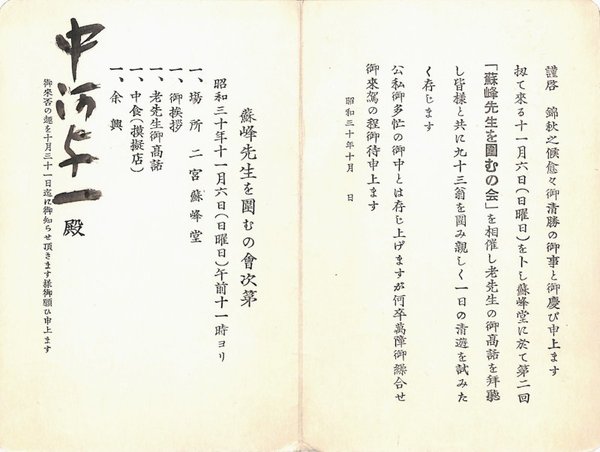 謹啓　錦秋之候愈々御清勝の御事と御慶び申上ます
扨て来る十一月六日(日曜日)を卜し蘇峰堂に於て第二回
「蘇峰先生を圍むの会」を相催し老先生の御高話を拜聽
し皆様と共に九十三翁を圍み親しく一日の清遊を試みた
く存じます
公私御多忙の御中とは存じ上げますが何卒萬障御繰合せ
御来駕の程御待申上ます
昭和三十年十月　日
蘇峰先生を圍むの會次第
昭和三十年十一月六日(日曜日)午前十一時ヨリ
一、場所　二宮蘇峰堂
一、御挨拶
一、老先生御高話
一、中食(摸擬店)
一、余興
中河与一殿
御來否の趣を十月三十一日迄に御知らせ頂きます樣御願ひ申上ます